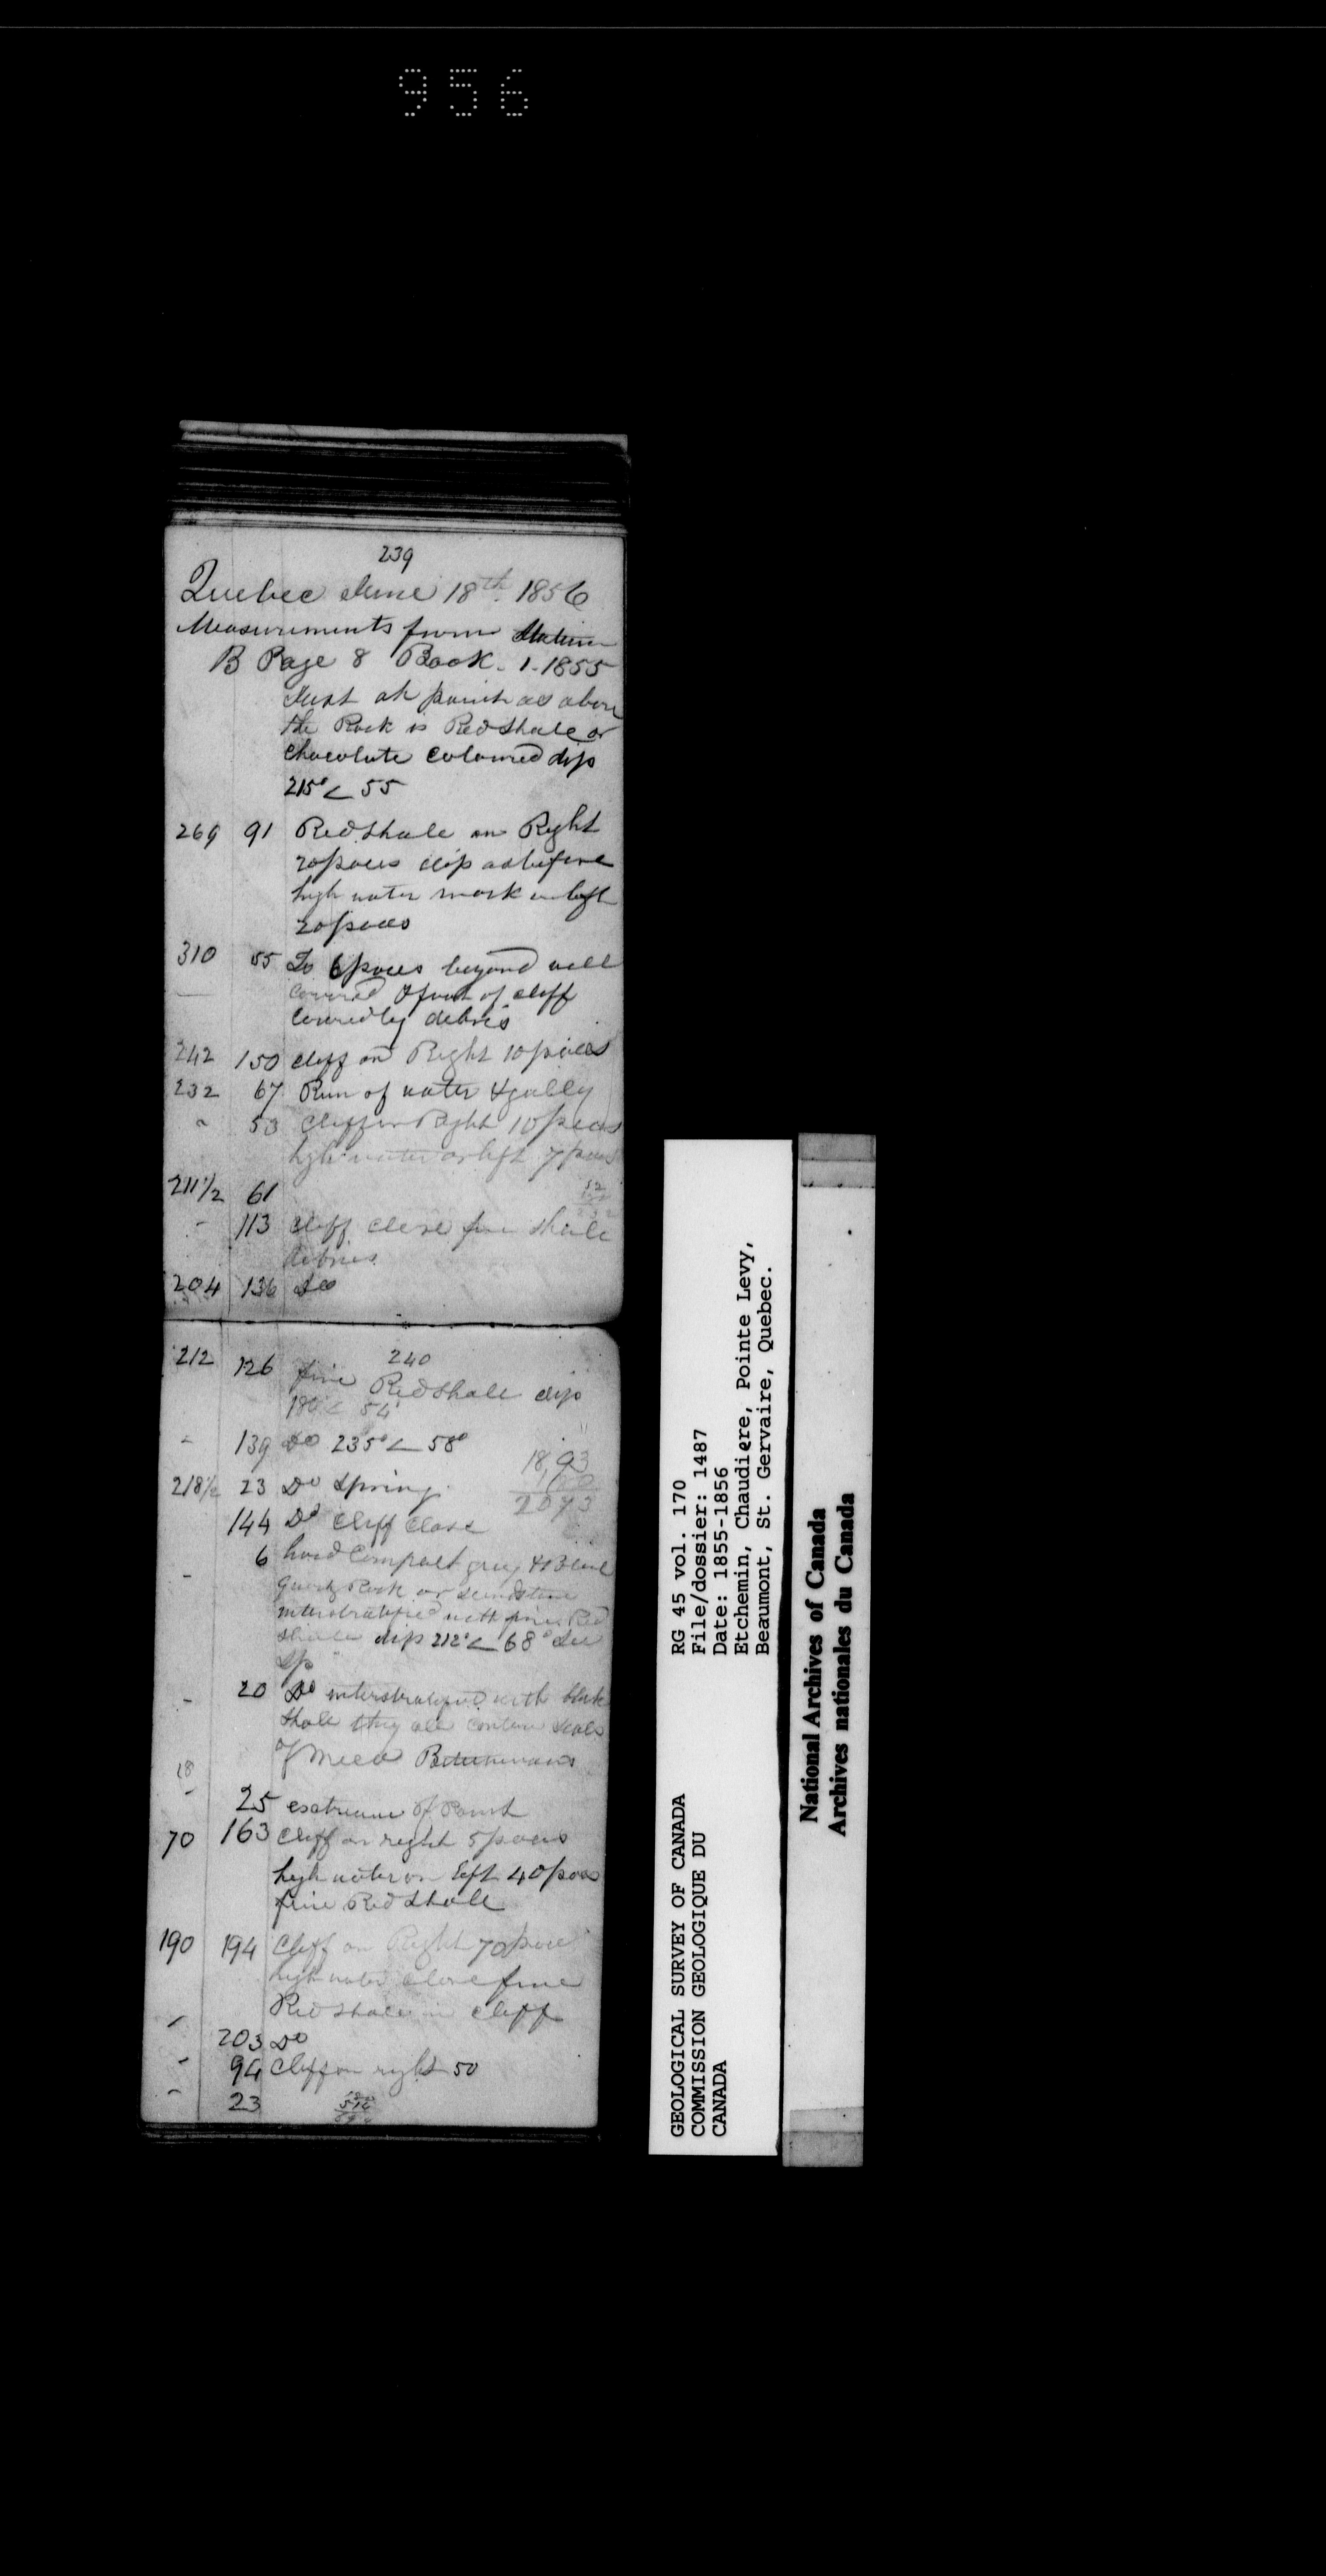 956
239
Quebec June 18th. 1856
Measurements from Station
B Page 8 Book. 1. 1855
Just at point as above
the Rock is Red Shale or
Chocolate Coloured dip
215° ∠ 55
269 91 Red Shale on Right
20 paces dip as before
high water mark on left
20 paces
310 55 To 6 paces beyond well
covered of cliff
covered by debris
242 150 cliff on Right 10 paces
232 67 Run of water & gully
" 53 cliff on Right 10 paces
high water on left 7 paces
211 1/2 61
- 113 cliff close fine shale
debries
204 136 Do
240
212 126 fine Red Shale dip
180 ∠ 54
- 139 Do 235° ∠ 58°
18,93
218 1/2 23 Do Spring
2073
144 Do Cliff Close
- 6 hard Compact grey & Blue
Quartz Rock or sandstone
interstratified with fine Red
Shale dip 212° ∠ 68° See
Sp
- 20 Do interstratified with black
Shale they all contain scales
of Mica Bituminous
18
- 25 extreme of Point
70 163 Cliff on right 5 paces
high water on left 40 paces
fine Red Shale
190 194 Cliff on Right 70 pace
high water close fine
Red Shale in Cliff
- 203 Do
- 94 Cliff on right 50
- 23
GEOLOGICAL SURVEY OF CANADA
COMMISSION GEOLOGIQUE DU
CANADA
RG 45 vol. 170
File/dossier: 1487
Date: 1855-1856
Etchemin, Chaudiere, Pointe Levy,
Beaumont, St. Gervaire, Quebec.
National Archives of Canada
Archives nationales du Canada